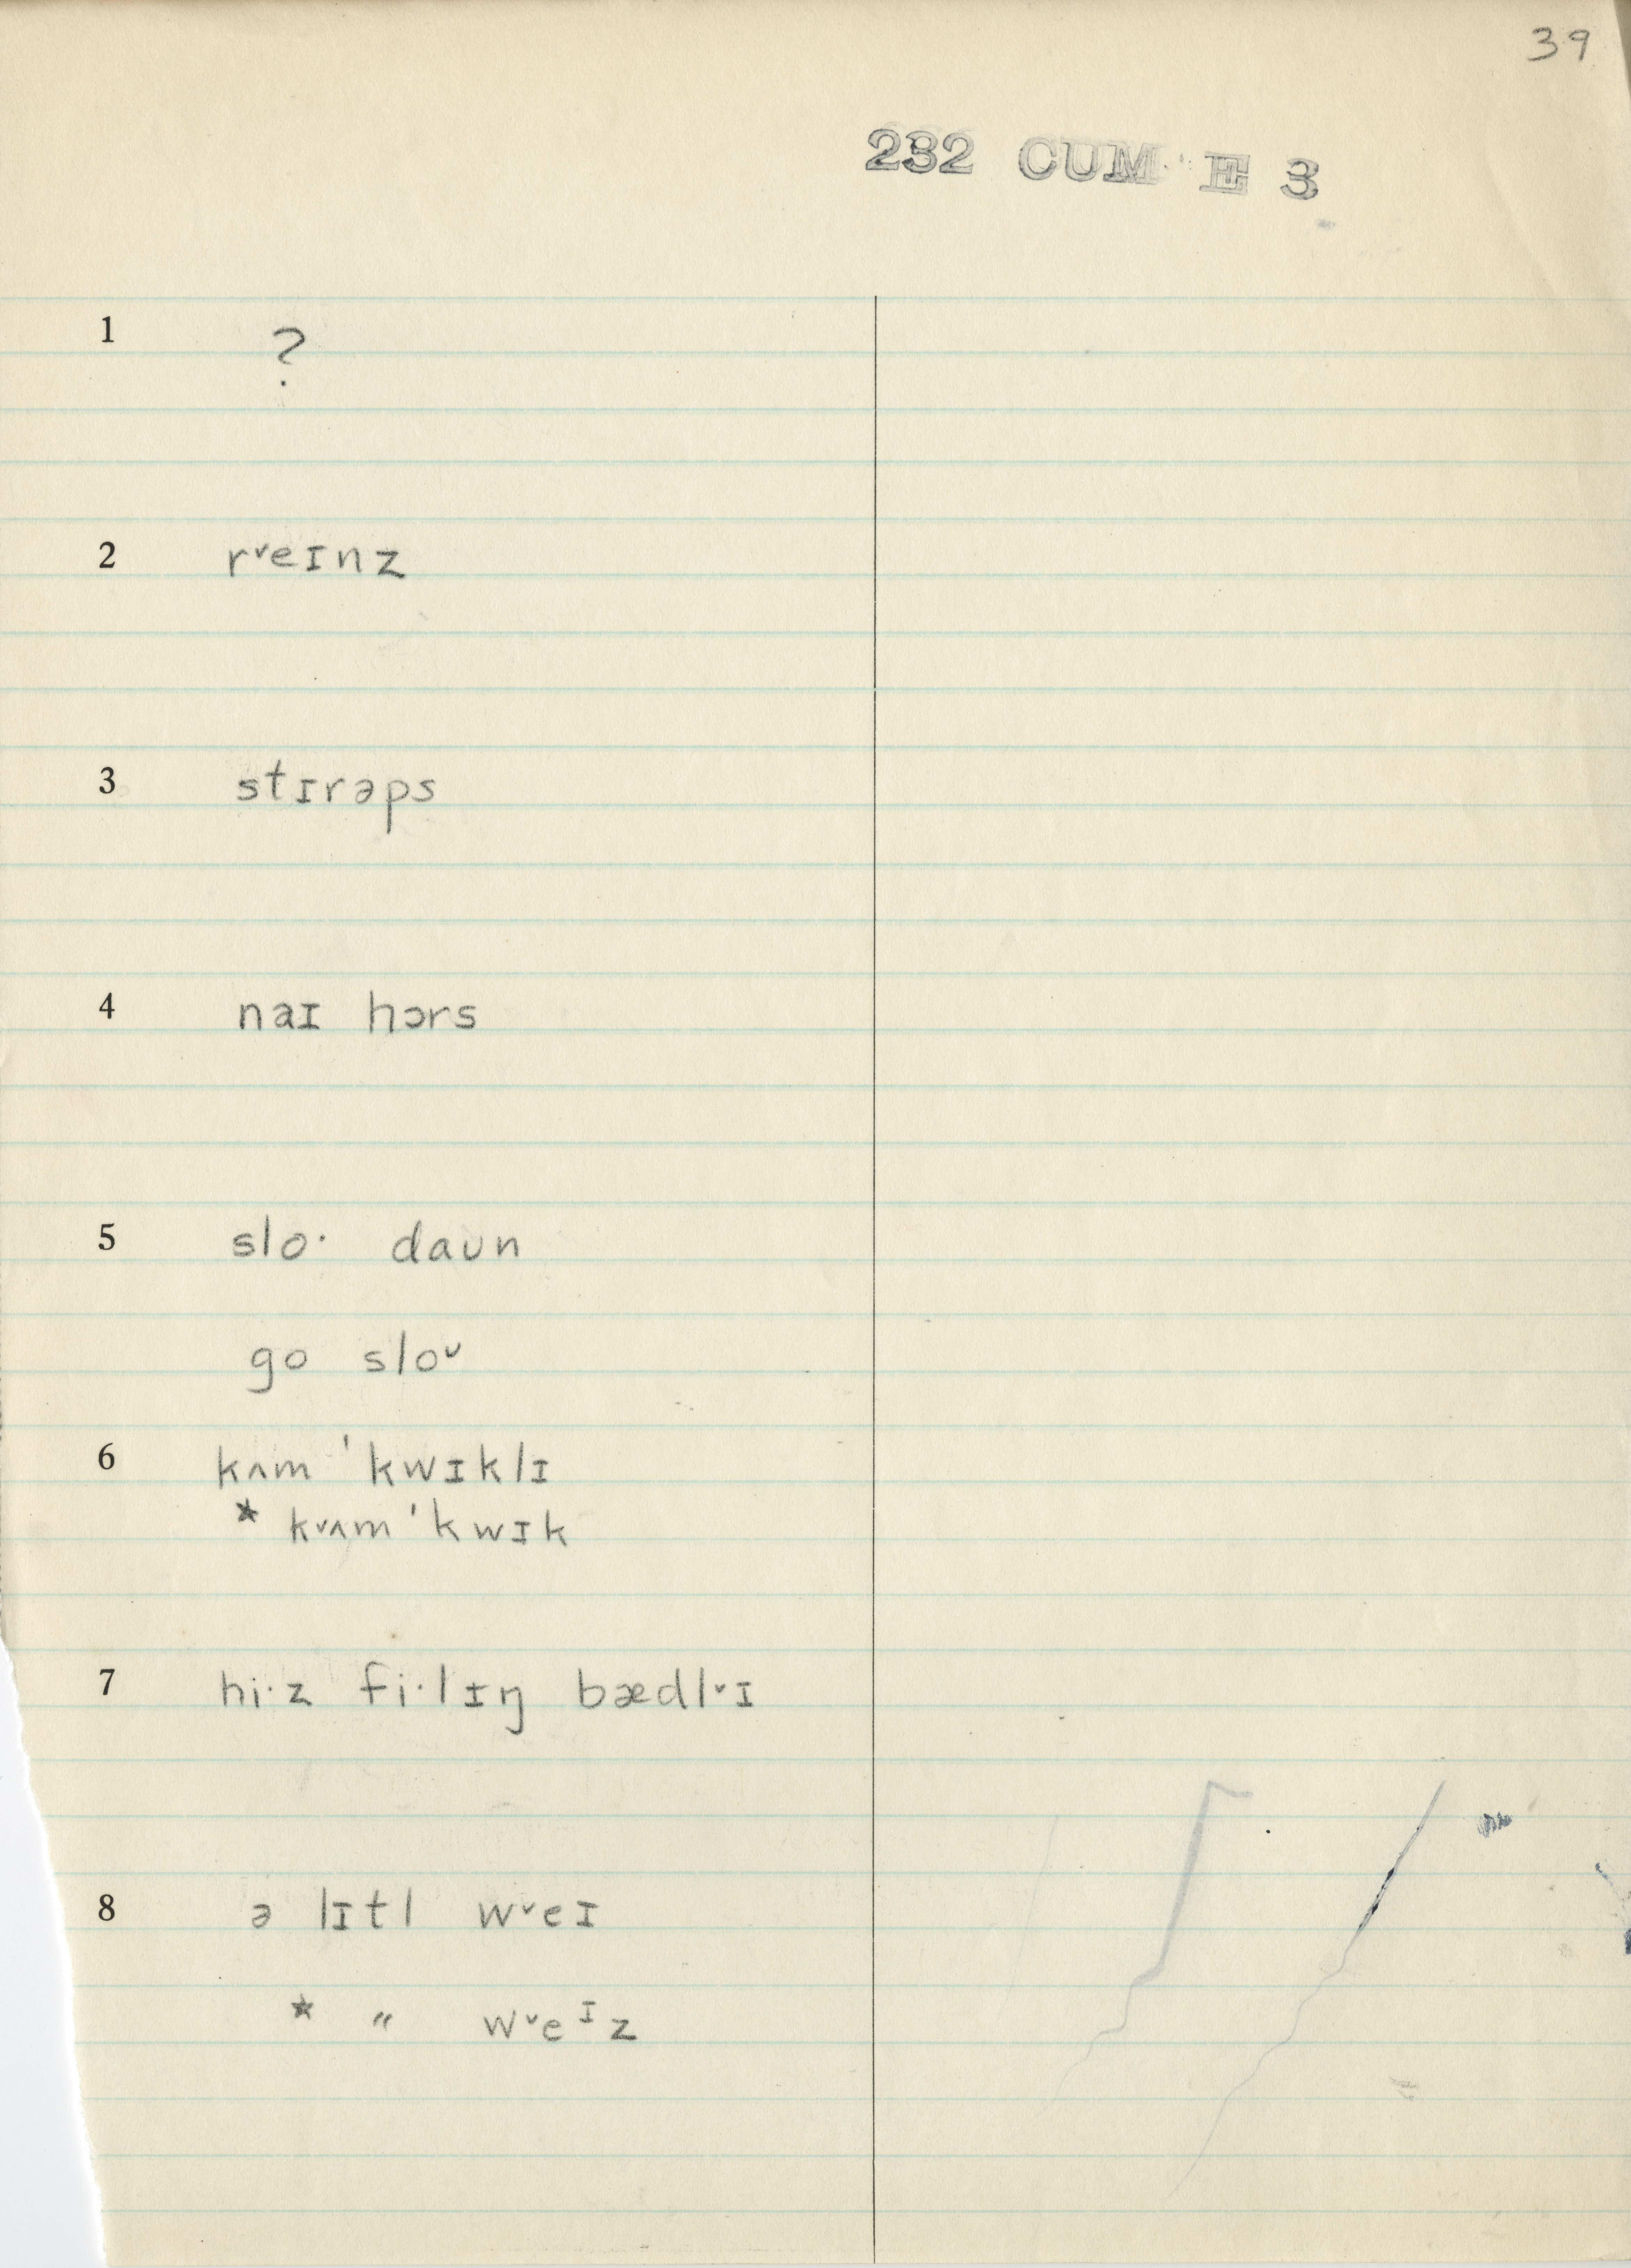 39
232 CUM E 3
1 ?
2 rᵛeɪnz
3 stɪrəps
4 naɪ hɔrs
5 slo· daʊn
go sloᵛ
6 kʌm 'kwɪklɪ
* kᵛʌm 'kwɪk
7 hi·z fi·lɪŋ bædlᵛɪ
8 ə lɪtl wᵛeɪ
* " wᵛeᶦz